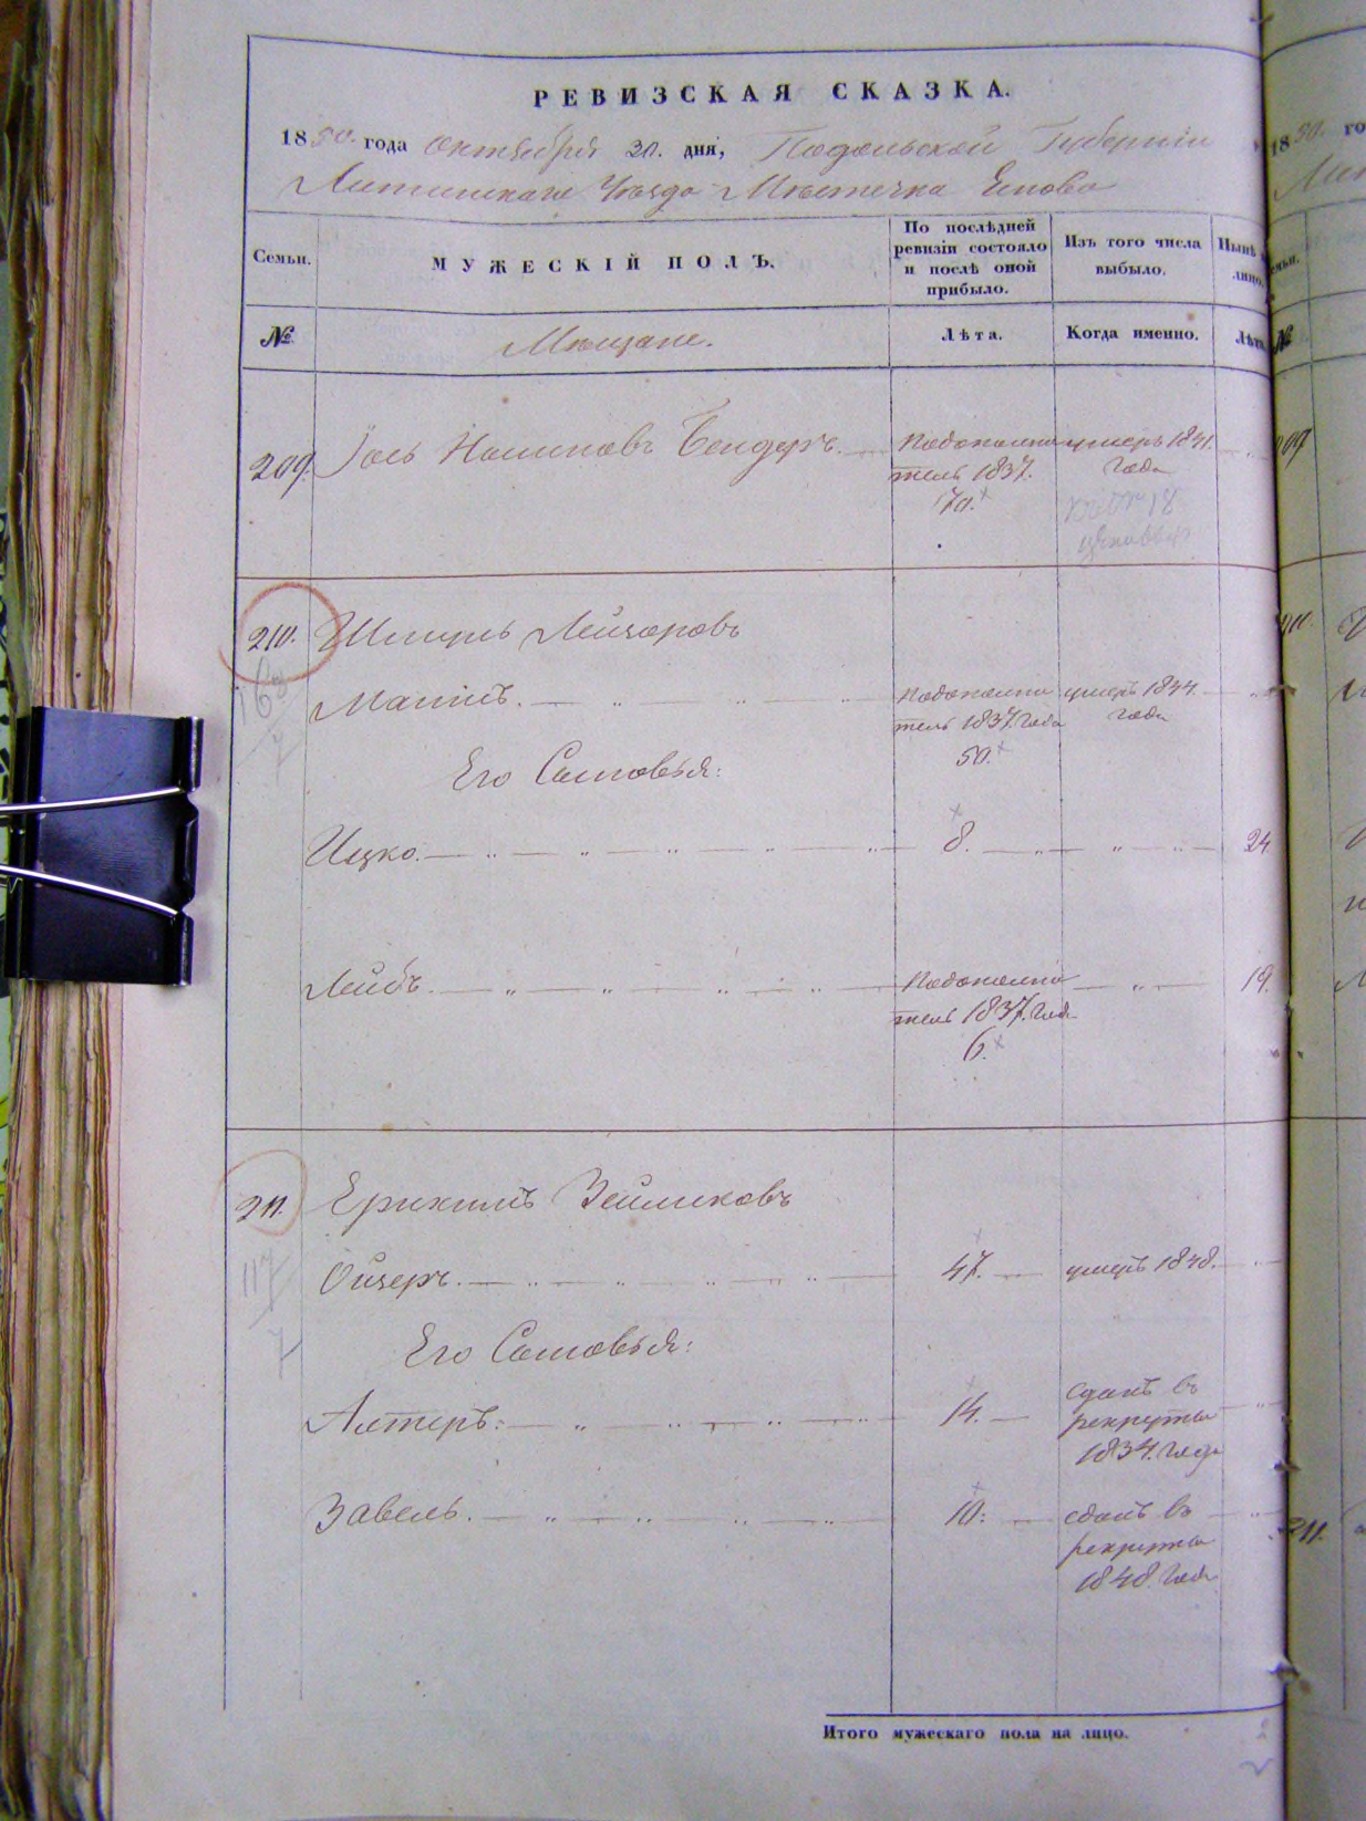 РЕВИЗСКАЯ СКАЗКА.
1850. года Октября 20. дня, Подольской Губерніи
Литинскаго Уѣзда Мѣстечка
Семьи.
МУЖЕСКІЙ ПОЛЪ.
По послѣдней ревизіи состояло и послѣ оной прибыло.
Изъ того числа выбыло.
Нынѣ
лицо.
№
Мѣщане.
Лѣта.
Когда именно.
Лѣта
209. Іось Бендеръ.
1837.
70.
умеръ 1841.
года
210. Шмуль Лейзоровъ
Манисъ.
1837. года
50.
умеръ 1844.
года
Его Сыновья:
Ицко. 8. 24
Лейбъ. 19.
1837. года
6.
211. Ерихимъ Зейликовъ
Ойзеръ. 47. умеръ 1848.
Его Сыновья:
Алтеръ: 14.
сданъ въ
рекруты
1834. года
Завель. 10:
сданъ въ
рекруты
1848. года
Итого мужескаго пола на лицо.
1850. го
№
209
211.